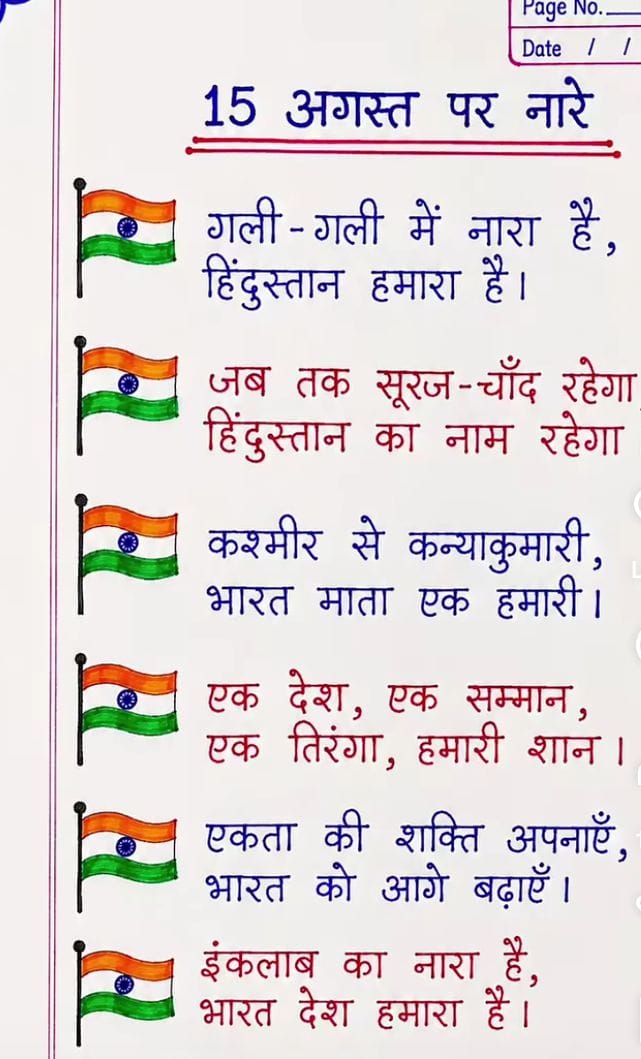 Page No.
Date / /
15 अगस्त पर नारे
गली-गली में नारा है,
हिंदुस्तान हमारा है।
जब तक सूरज-चाँद रहेगा
हिंदुस्तान का नाम रहेगा
कश्मीर से कन्याकुमारी,
भारत माता एक हमारी।
एक देश, एक सम्मान,
एक तिरंगा, हमारी शान।
एकता की शक्ति अपनाएँ,
भारत को आगे बढ़ाएँ।
इंकलाब का नारा है,
भारत देश हमारा है।